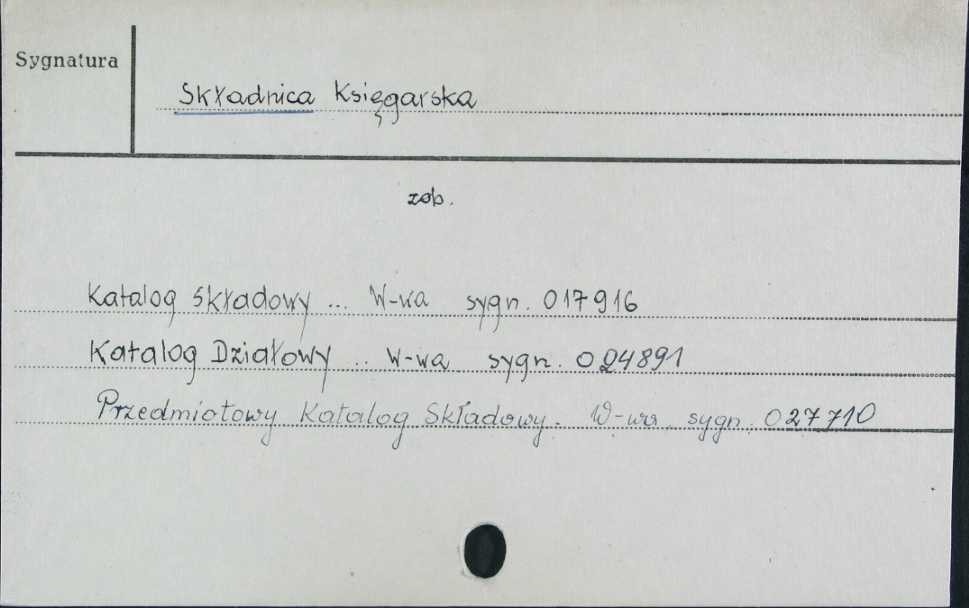 Sygnatura
Składnica Księgarska
zob.
Katalog Składowy ... W-wa sygn. 017916
Katalog Działowy ... W-wa sygn. 024891
Przedmiotowy Katalog Składowy. W-wa sygn. 027710